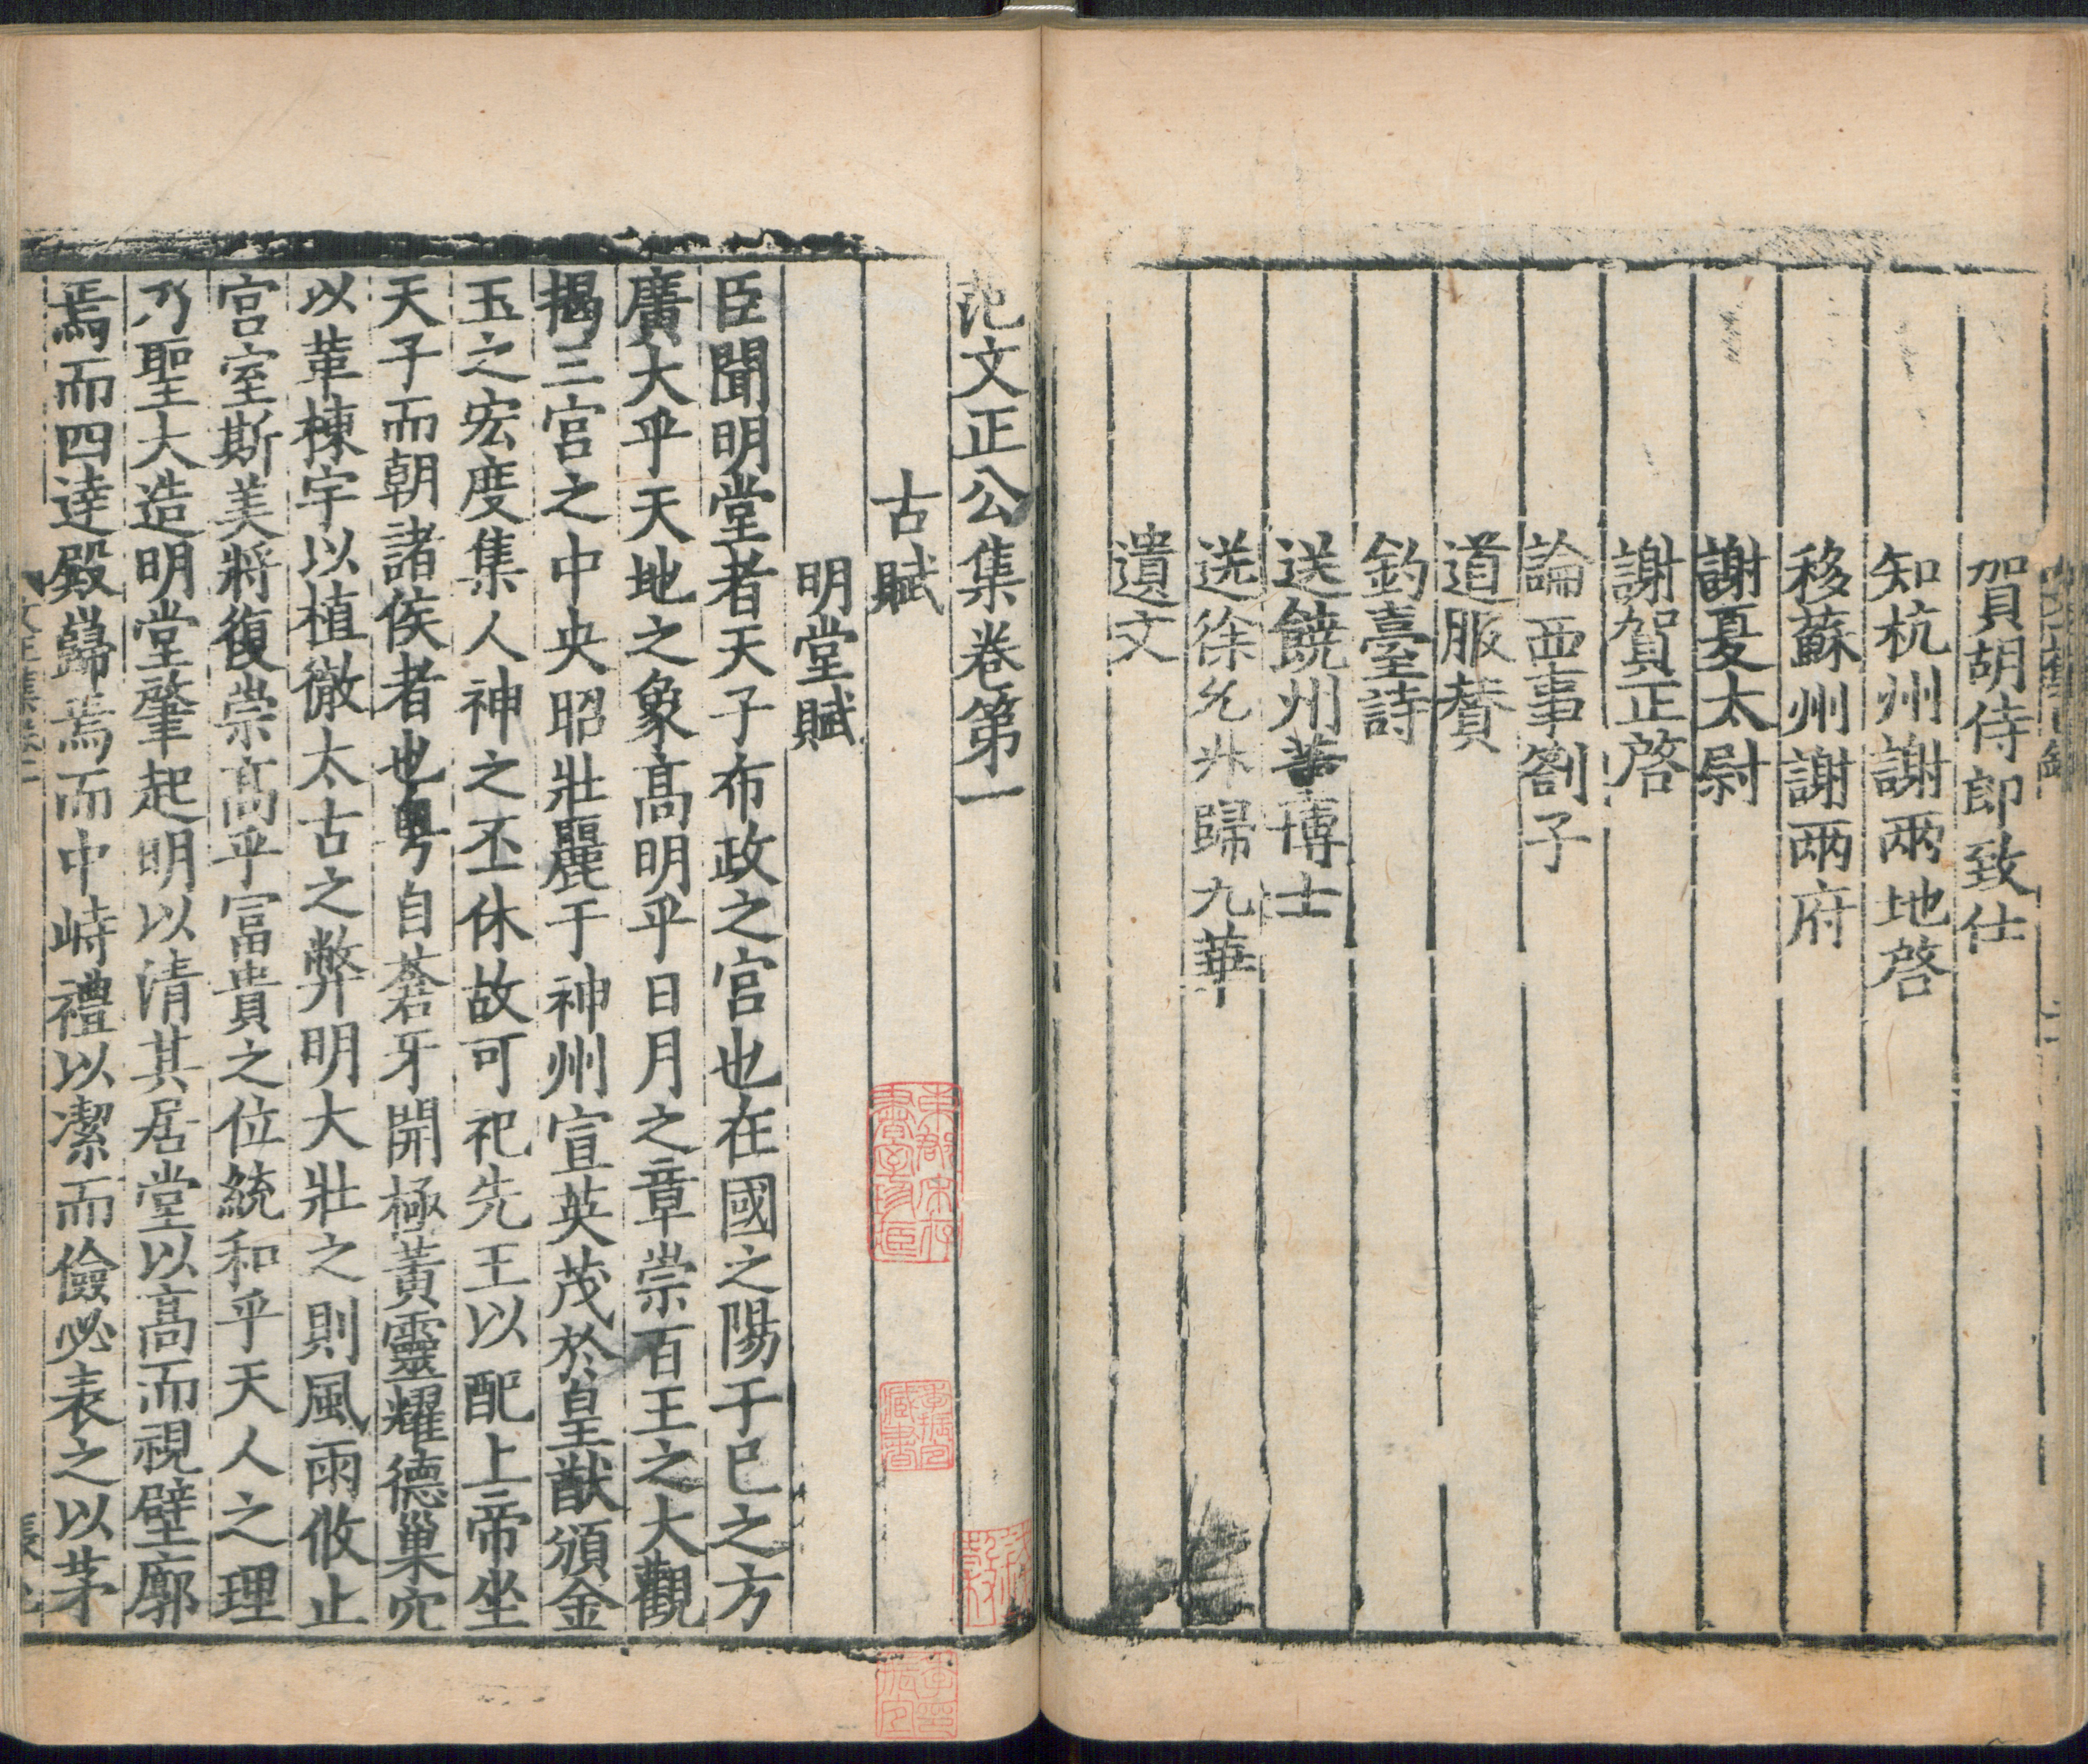 賀胡侍郎致仕
知杭州謝兩地啓
移蘇州謝兩府
謝夏太尉
謝賀正啓
論西事劄子
道服賛
釣臺詩
送饒州董博士
送徐允升歸九華
遺文
范文正公集卷第一
古賦
明堂賦
臣聞明堂者天子布政之宫也在國之陽于巳之方
廣大乎天地之象髙明乎日月之章崇百王之大觀
揭三宫之中央昭壯麗于神州宣英茂於皇猷頒金
玉之宏度集人神之丕休故可祀先王以配上帝坐
天子而朝諸侯者也粤自蒼牙開極黃靈耀德巢穴
以革棟宇以植徹太古之弊明大壯之則風雨攸止
宫室斯美將復崇髙乎冨貴之位統和乎天人之理
乃聖大造明堂肇起明以清其居堂以髙而視壁廓
焉而四逹殿巋焉而中峙禮以潔而儉必表之以茅